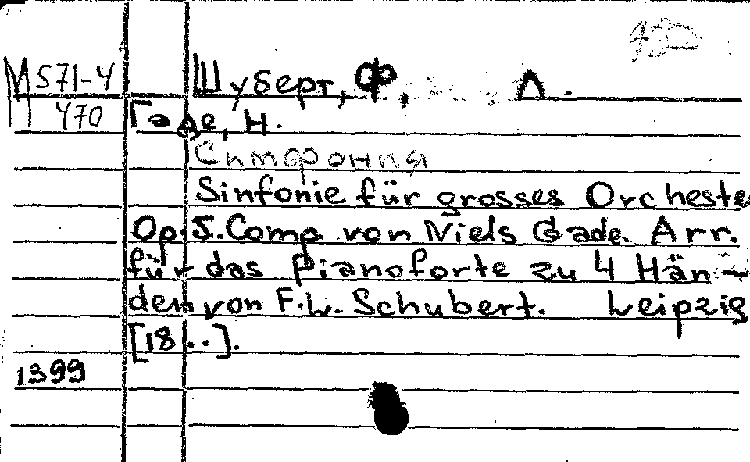 М 571-4 Шуберт, Ф. Л.
470 Гаде, Н.
Симфония
Sinfonie für grosses Orcheste
Op. 5. Comp. von Niels Gade. Arr.
für das Pianoforte zu 4 Hän-
den von F. L. Schubert. Leipzig
[18..].
1399